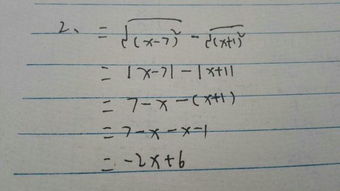 2、 = √(x-7)² - √(x+1)²
= |x-7| - |x+1|
= 7-x-(x+1)
= 7-x-x-1
= -2x+6